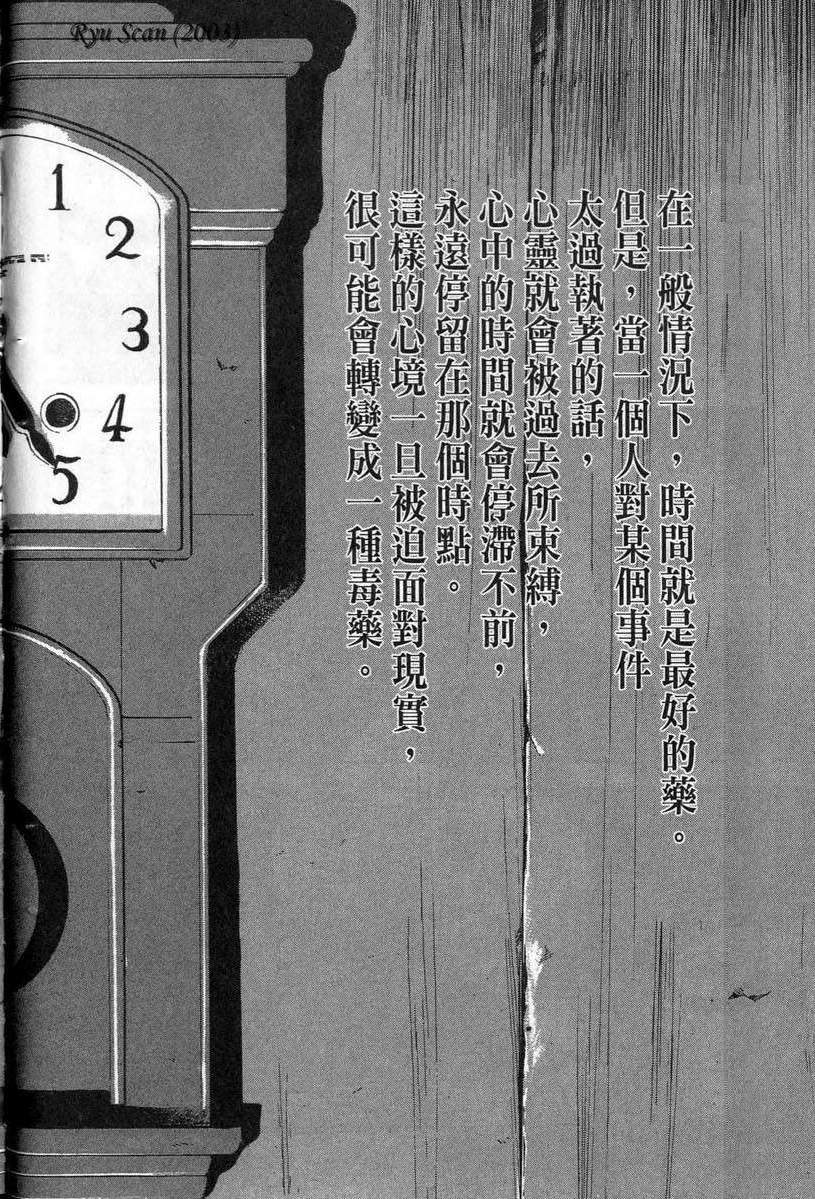 Ryu Scan (2003)
在一般情況下，時間就是最好的藥。
但是，當一個人對某個事件
太過執著的話，
心靈就會被過去所束縛，
心中的時間就會停滯不前，
永遠停留在那個時點。
這樣的心境一旦被迫面對現實，
很可能會轉變成一種毒藥。
1
2
3
4
5